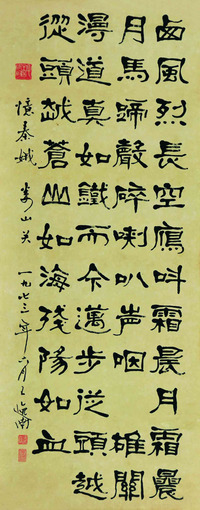 西風烈長空鴈叫霜晨月霜晨
月馬蹄聲碎喇叭声咽雄關
漫道真如鐵而今邁步従頭越
從頭越蒼山如海殘陽如血
憶秦娥 娄山关 一九七三年六月王